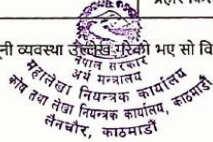 नी व्यवस्था उल्लेख गरेको भए सो वि
नेपाल सरकार
अर्थ मन्त्रालय
महालेखा नियन्त्रक कार्यालय
कोष तथा लेखा नियन्त्रक कार्यालय, काठमाडौं
तैनचौर, काठमाडौं